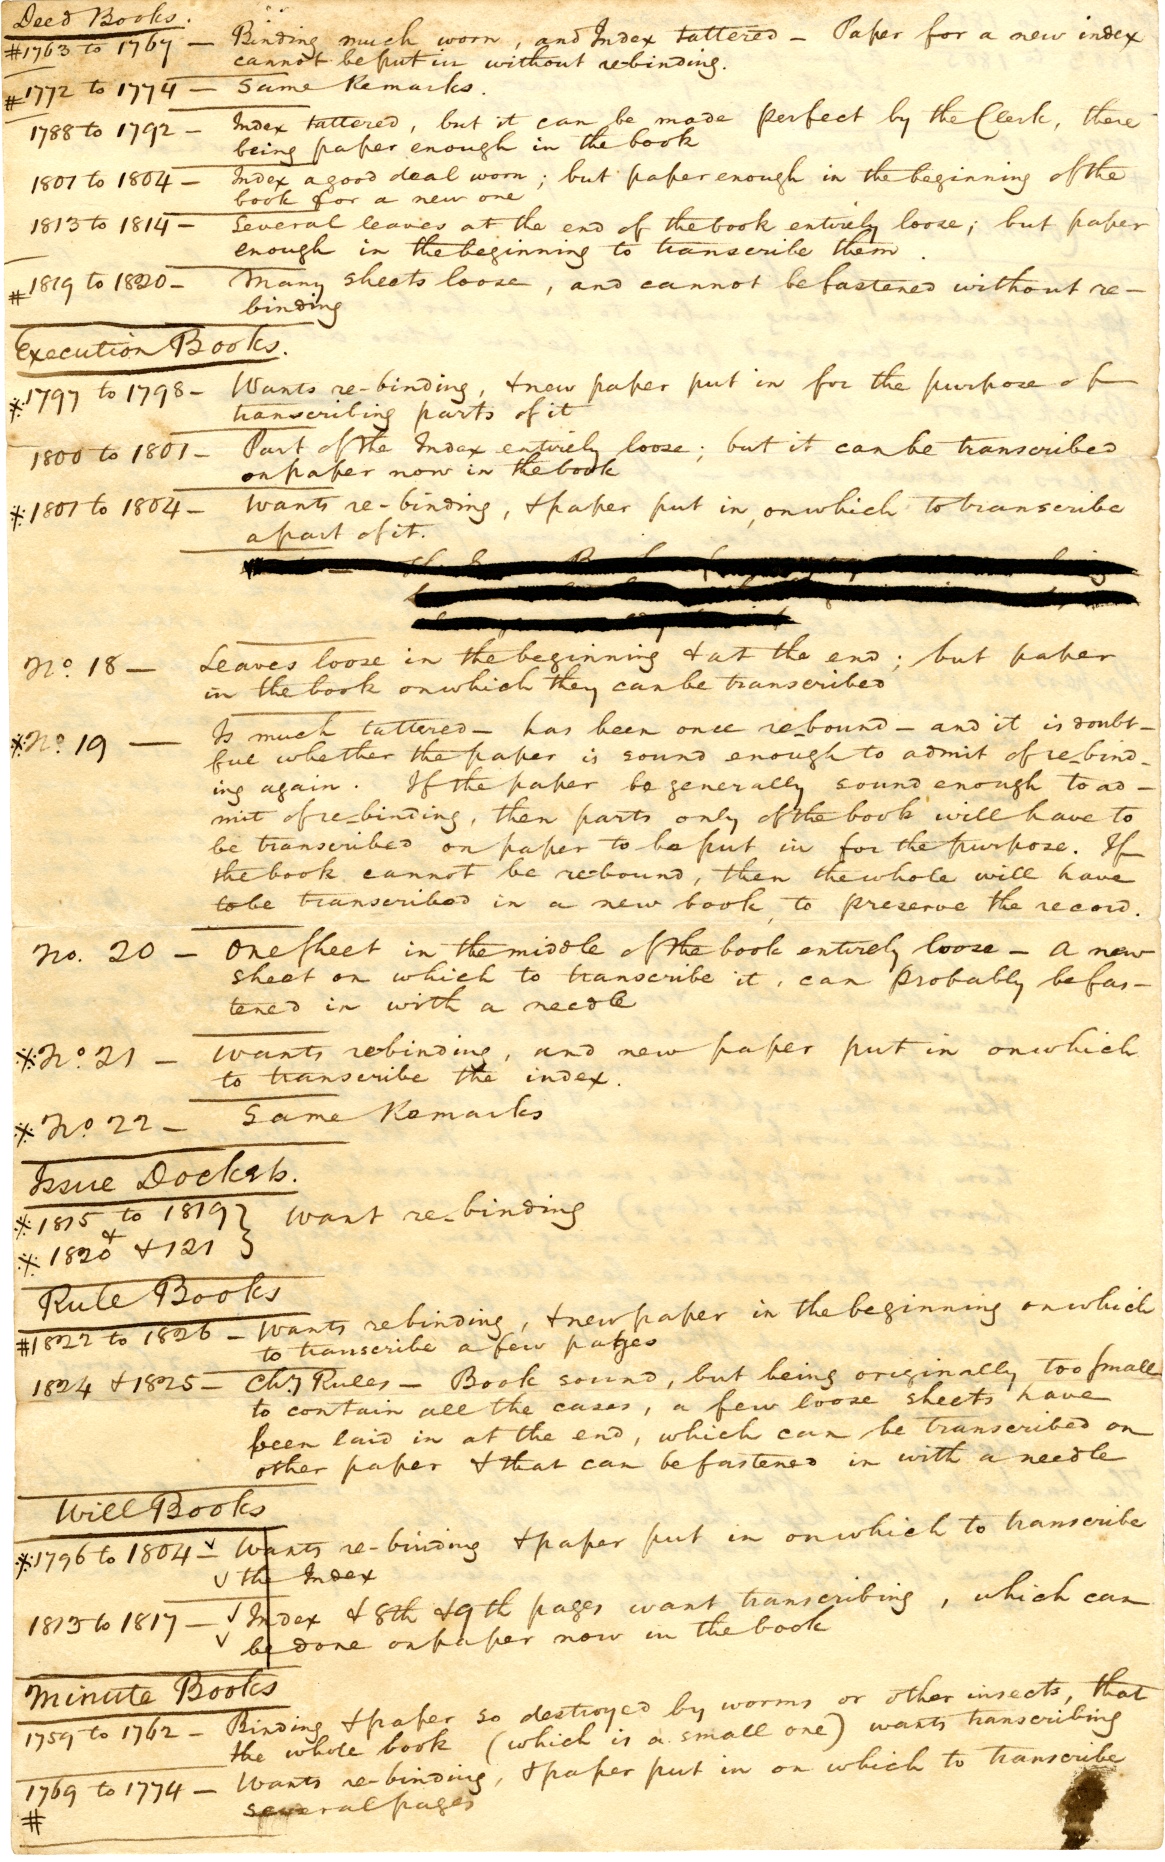 Deed Books.
#1763 to 1767 — Binding much worn, and Index tattered — Paper for a new index
cannot be put in without rebinding.
#1772 to 1774 — Same Remarks.
1788 to 1792 — Index tattered, but it can be made perfect by the Clerk, there
being paper enough in the book
1801 to 1804 — Index a good deal worn; but paper enough in the beginning of the
book for a new one
1813 to 1814 — Several leaves at the end of the book entirely loose; but paper
enough in the beginning to transcribe them.
#1819 to 1820 — Many sheets loose, and cannot be fastened without re-
binding
Execution Books.
※1797 to 1798 — Wants re-binding, & new paper put in for the purpose of
transcribing parts of it
1800 to 1801 — Part of the Index entirely loose; but it can be transcribed
on paper now in the book
※1801 to 1804 — Wants re-binding, & paper put in, on which to transcribe
a part of it.
No. 18 — Leaves loose in the beginning & at the end; but paper
in the book on which they can be transcribed
※No. 19 — Is much tattered — has been once re-bound — and it is doubt-
ful whether the paper is sound enough to admit of re-bind-
ing again. If the paper be generally sound enough to ad-
mit of re-binding, then parts only of the book will have to
be transcribed on paper to be put in for the purpose. If
the book cannot be rebound, then the whole will have
to be transcribed in a new book, to preserve the record.
No. 20 — One sheet in the middle of the book entirely loose — A new
sheet on which to transcribe it, can probably be fas-
tened in with a needle
※No. 21 — Wants rebinding, and new paper put in on which
to transcribe the index.
※No. 22 — Same Remarks
Issue Dockets.
※1815 to 1819 } Want re-binding
&
※1820 & 121 }
Rule Books
#1822 to 1826 — Wants rebinding, & new paper in the beginning on which
to transcribe a few pages
1824 & 1825 — Chy Rules — Book sound, but being originally too small
to contain all the cases, a few loose sheets have
been laid in at the end, which can be transcribed on
other paper & that can be fastened in with a needle
Will Books
※1796 to 1804 — Wants re-binding & paper put in on which to transcribe
the Index
1813 to 1817 — Index & 8th & 9th pages want transcribing, which can
be done on paper now in the book
Minute Books
1759 to 1762 — Binding & paper so destroyed by worms or other insects, that
the whole book (which is a small one) wants transcribing
1769 to 1774 — Wants re-binding, & paper put in on which to transcribe
# several pages